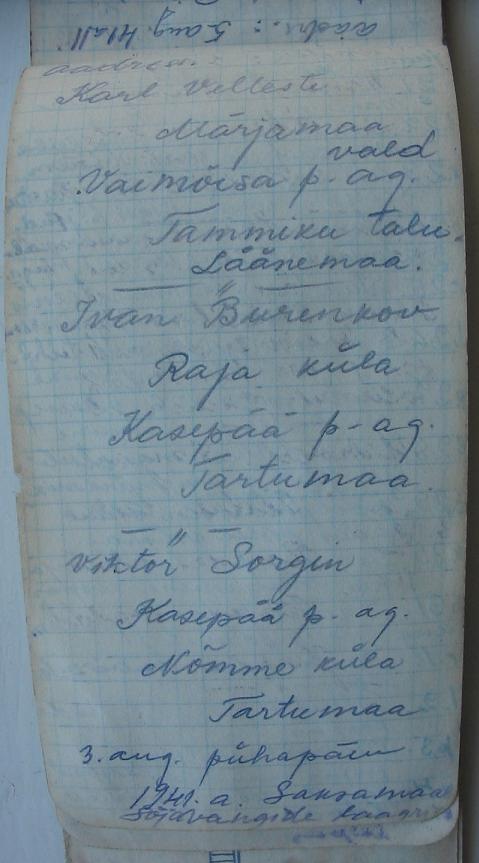 aadress.
Karl Velleste
Märjamaa
vald
Vaimõisa p. ag.
Tammiku talu.
Läänemaa.
— " —
Ivan Burenkov
Raja küla
Kasepää p-ag.
Tartumaa.
— " —
Viktor Sorgin
Kasepää p. ag.
Nõmme küla
Tartumaa
3. aug. pühapäev
1941. a. Saksamaa
Sõjavangide laagris